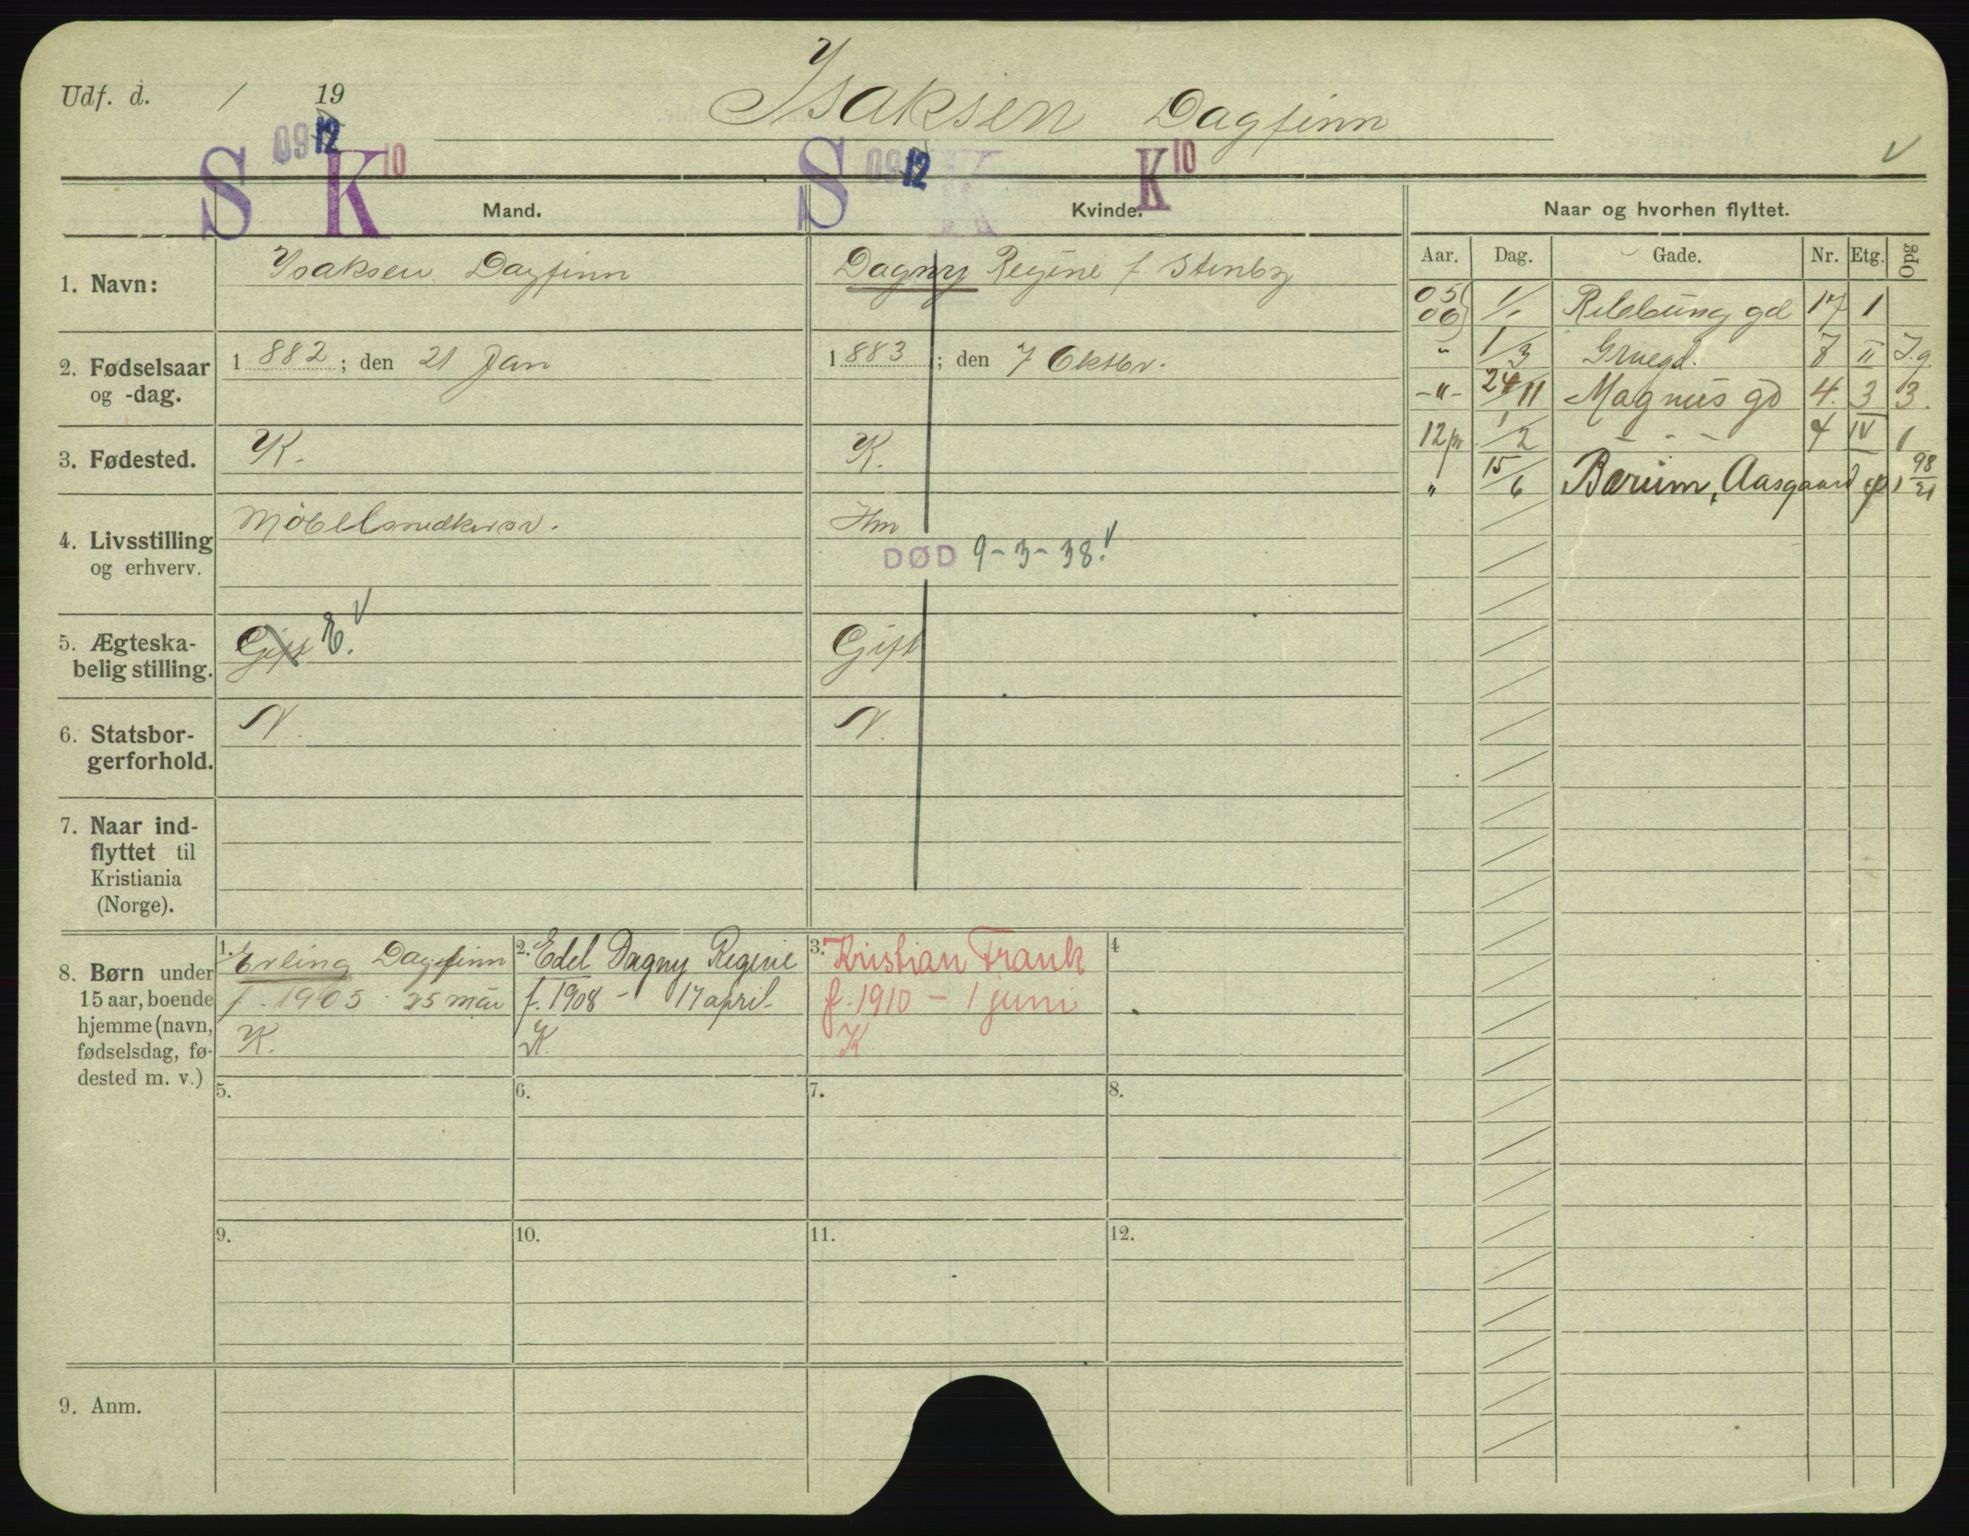 Udf. d. 1 19
Ysaksen Dagfinn
S 09 12 K 10
S 09 12 K K 10
Mand.
Kvinde.
Naar og hvorhen flyttet.
Aar. Dag. Gade. Nr. Etg. Opg
1. Navn:
Ysaksen Dagfinn
Dagny Regine f Stenby
2. Fødselsaar
og -dag.
1882; den 21 Jan
1883; den 7 Oktbr.
3. Fødested.
K.
K.
4. Livsstilling
og erhverv.
Møbelsnedkersv.
Hm
DØD 9-3-38.
5. Ægteska-
belig stilling.
Gift E.
Gift
6. Statsbor-
gerforhold.
N.
N.
7. Naar ind-
flyttet til
Kristiania
(Norge).
8. Børn under
15 aar, boende
hjemme (navn,
fødselsdag, fø-
dested m. v.)
1. Erling Dagfinn
f. 1905 25 mai
K.
2. Edel Dagny Regine
f. 1908 - 17 april.
K.
3. Kristian Frank
f. 1910 - 1 juni
K
4
5.
6.
7.
8.
9.
10.
11.
12.
9. Anm.
05
06 1/1 gd 17 1
" 1/3 Gruegd. 8 II Ig.
-"- 24/11 Magnus gd 4. 3 3.
12 pr 1/2 - " - 4 IV 1
" 15/6 Bærum, Aasgaard 98/21